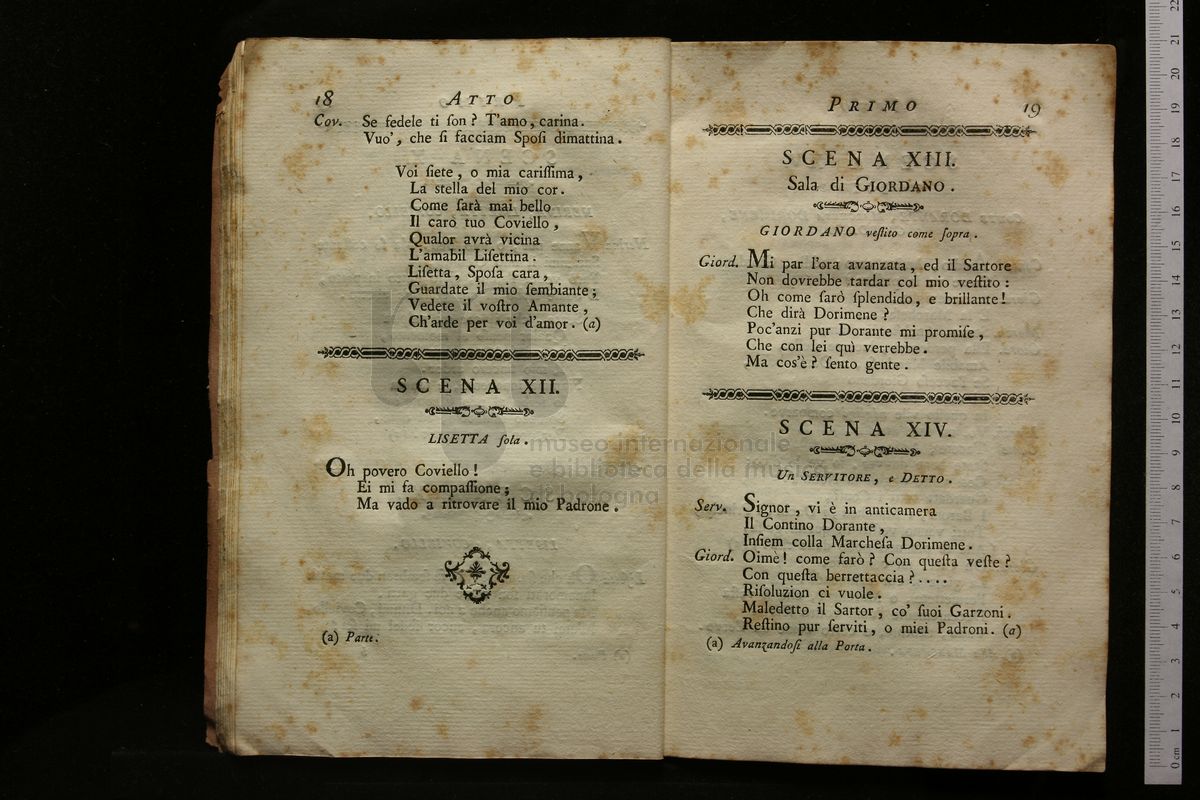 18 ATTO
Cov. Se fedele ti ſon? T'amo, carina.
Vuo', che ſi facciam Spoſi dimattina.
Voi ſiete, o mia cariſſima,
La stella del mio cor.
Come ſarà mai bello
Il caro tuo Coviello,
Qualor avrà vicina
L'amabil Liſettina.
Liſetta, Spoſa cara,
Guardate il mio ſembiante;
Vedete il voſtro Amante,
Ch'arde per voi d'amor. (a)
SCENA XII.
LISETTA ſola.
Oh povero Coviello!
Ei mi fa compaſſione;
Ma vado a ritrovare il mio Padrone.
(a) Parte.
PRIMO 19
SCENA XIII.
Sala di GIORDANO.
GIORDANO veſtito come ſopra.
Giord. Mi par l'ora avanzata, ed il Sartore
Non dovrebbe tardar col mio veſtito:
Oh come ſarò ſplendido, e brillante!
Che dirà Dorimene?
Poc'anzi pur Dorante mi promiſe,
Che con lei quì verrebbe.
Ma cos'è? ſento gente.
SCENA XIV.
Un SERVITORE, e DETTO.
Serv. Signor, vi è in anticamera
Il Contino Dorante,
Inſiem colla Marcheſa Dorimene.
Giord. Oimè! come farò? Con queſta veſte?
Con queſta berrettaccia?....
Riſoluzion ci vuole.
Maledetto il Sartor, co' ſuoi Garzoni.
Reſtino pur ſerviti, o miei Padroni. (a)
(a) Avanzandoſi alla Porta.
museo internazionale
e biblioteca della musica
di bologna
0 cm 1 2 3 4 5 6 7 8 9 10 11 12 13 14 15 16 17 18 19 20 21 22